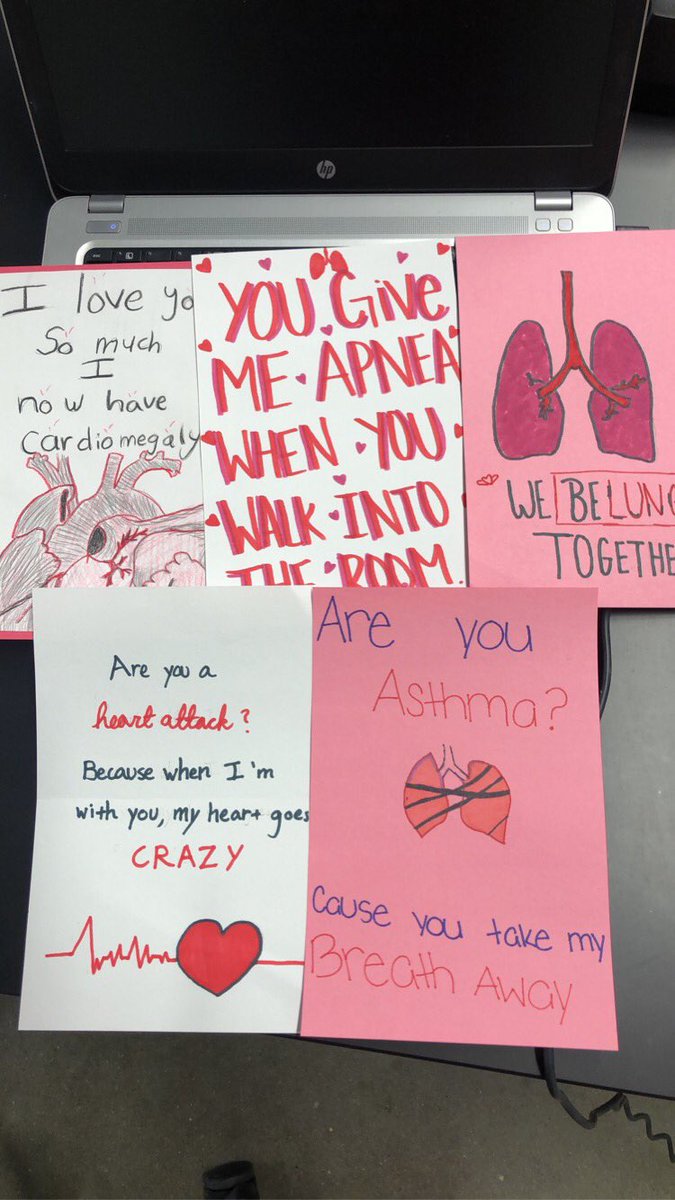 hp
esc
I love yo
So much
I
now have
Cardiomegaly
YOU GIVE
ME APNEA
WHEN YOU
WALK INTO
THE ROOM.
WE BELUNG
TOGETHE
Are you a
heart attack?
Because when I'm
with you, my heart goes
CRAZY
Are you
Asthma?
Cause you take my
Breath Away